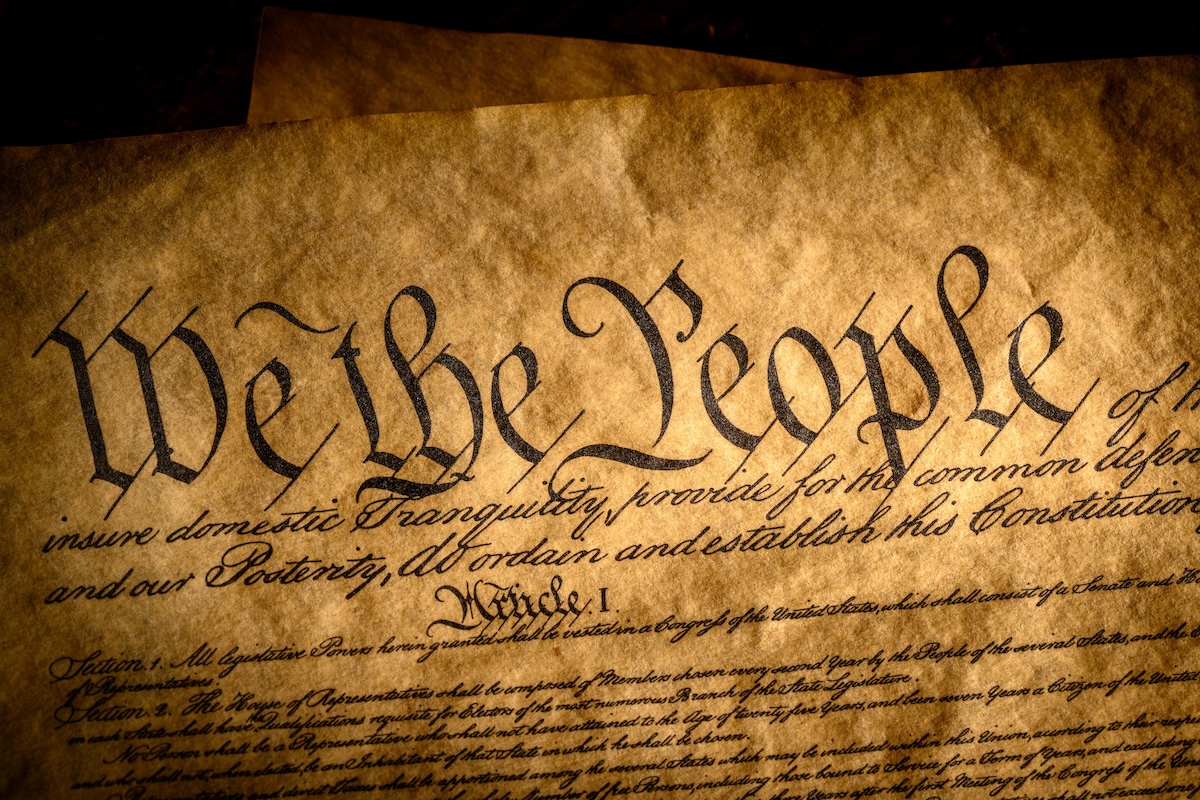 We the People of
insure domestic Tranquility, provide for the common defen
and our Posterity, do ordain and establish this Constitution
Article. I.
Section. 1. All legislative Powers herein granted shall be vested in a Congress of the United States, which shall consist of a Senate and Ho
of Representatives.
Section. 2. The House of Representatives shall be composed of Members chosen every second Year by the People of the several States, and the
in each State shall have the Qualifications requisite for Electors of the most numerous Branch of the State Legislature.
No Person shall be a Representative who shall not have attained to the Age of twenty five Years, and been seven Years a Citizen of the United
and who shall not, when elected, be an Inhabitant of that State in which he shall be chosen.
Representatives and direct Taxes shall be apportioned among the several States which may be included within this Union, according to their respe
Number of free Persons, including those bound to Service for a Term of Years, and excluding
three Years after the first Meeting of the Congress of the Uni
shall not exceed one